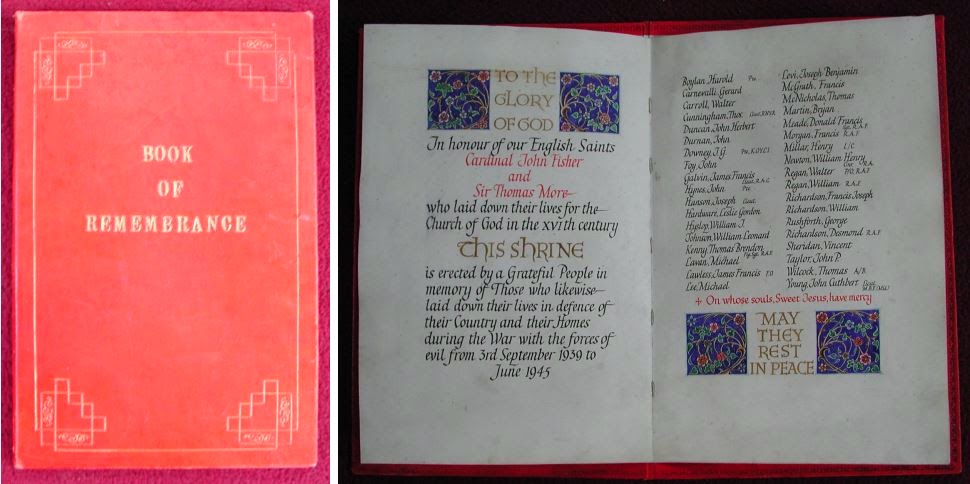 BOOK
OF
REMEMBRANCE
TO THE
GLORY
OF GOD
In honour of our English Saints
Cardinal John Fisher
and
Sir Thomas More
who laid down their lives for the
Church of God in the XVIth century
this shrine
is erected by a Grateful People in
memory of Those who likewise
laid down their lives in defence of
their Country and their Homes
during the War with the forces of
evil from 3rd September 1939 to
June 1945
Boylan, Harold Pte.
Carnevalli, Gerard
Carroll, Walter
Cunningham, Thos. Lieut. R.N.V.R.
Duncan, John Herbert
Durnan, John
Downey, T.G. Pte, K.O.Y.L.I.
Foy, John
Galvin, James Francis
Lieut. R.A.C.
Hynes, John Pte.
Hanson, Joseph Lieut.
Hardware, Leslie Gordon
Hyslop, William J.
Johnson, William Leonard
Kenny, Thomas Brendon
Flg. Sgt. R.A.F.
Lavan, Michael
Lawless, James Francis F.O
Lee, Michael
Levi, Joseph Benjamin
McGrath, Francis
McNicholas, Thomas
Martin, Bryan
Meade, Donald Francis
Sgt. R.A.F.
Morgan, Francis R.A.F.
Millar, Henry L/C.
Newton, William Henry
Gnr. R.A.
Regan, Walter P/O, R.A.F.
Regan, William R.A.F.
Richardson, Francis Joseph
Richardson, William
Rushforth, George
Richardson, Desmond R.A.F.
Sheridan, Vincent
Taylor, John P.
Wilcock, Thomas A/B
Young, John Cuthbert Lieut.
+ On whose souls, Sweet Jesus, have mercy
MAY
THEY
REST
IN PEACE